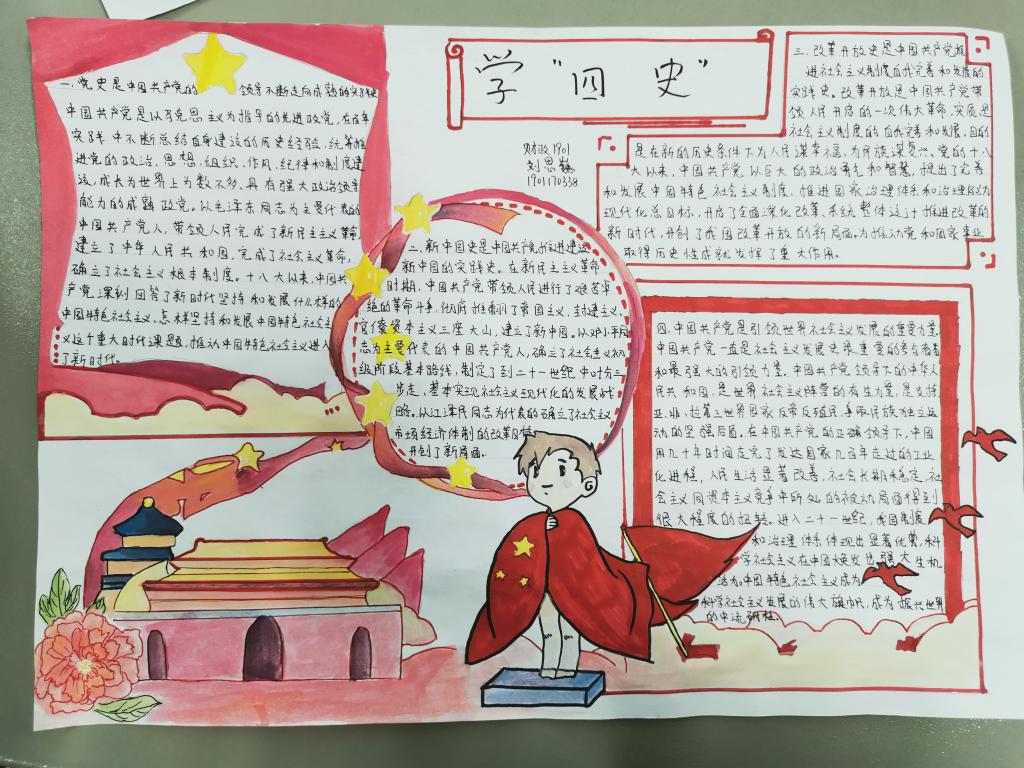 学“四史”
财政1901
刘思
1901170338
一.党史是中国共产党的领导不断走向成熟的实践史
中国共产党是以马克思主义为指导的先进政党,在百年
实践中不断总结自身建设的历史经验,统筹推
进党的政治、思想、组织、作风、纪律和制度建
设,成长为世界上为数不多、具有强大政治领导
能力的成熟政党。以毛泽东同志为主要代表的
中国共产党人,带领人民完成了新民主主义革命,
建立了中华人民共和国,完成了社会主义革命,
确立了社会主义根本制度。十八大以来,中国共
产党深刻回答了新时代坚持和发展什么样的
中国特色社会主义,怎样坚持和发展中国特色社会主
义这个重大时代课题,推动中国特色社会主义进入
了新时代。
二.新中国史是中国共产党推进建设
新中国的实践史。在新民主主义革命
时期,中国共产党带领人民进行了艰苦卓
绝的革命斗争,彻底推翻了帝国主义,封建主义,
官僚资本主义三座大山,建立了新中国。以邓小平同
志为主要代表的中国共产党人,确立了社会主义初
级阶段基本路线,制定了到二十一世纪中叶分三
步走、基本实现社会主义现代化的发展战
略。以江泽民同志为代表的确立了社会主义
市场经济体制的改革目标
开创了新局面。
三.改革开放史是中国共产党推
进社会主义制度自我完善和发展的
实践史。改革开放是中国共产党带
领人民开启的一次伟大革命,实质是
社会主义制度的自我完善和发展,目的
是在新的历史条件下为人民谋幸福,为民族谋复兴。党的十八
大以来,中国共产党以巨大的政治勇气和智慧,提出了完善
和发展中国特色社会主义制度、推进国家治理体系和治理能力
现代化总目标,开启了全面深化改革、系统整体设计推进改革的
新时代,开创了我国改革开放的新局面,为推动党和国家事业
取得历史性成就发挥了重大作用。
四.中国共产党是引领世界社会主义发展的重要力量
中国共产党一直是社会主义发展史最重要的参与者
和最强大的引领力量。中国共产党领导下的中华人
民共和国,是世界社会主义阵营的有生力量,是支持
亚、非、拉第三世界国家反帝反殖民,争取民族独立运
动的坚强后盾。在中国共产党的正确领导下,中国
用几十年时间走完了发达国家几百年走过的工业
化进程,人民生活显著改善,社会长期稳定,
社会主义同资本主义竞争中所处的被动局面得到
很大程度的扭转。进入二十一世纪,我国制度
和治理体系体现出显著优势,科
学社会主义在中国焕发出强大生机
活力。中国特色社会主义成为
科学社会主义发展的伟大旗帜,成为振兴世界
的中流砥柱.